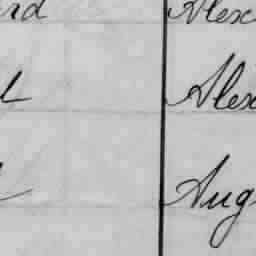 rd Alex
l Alex
Aug